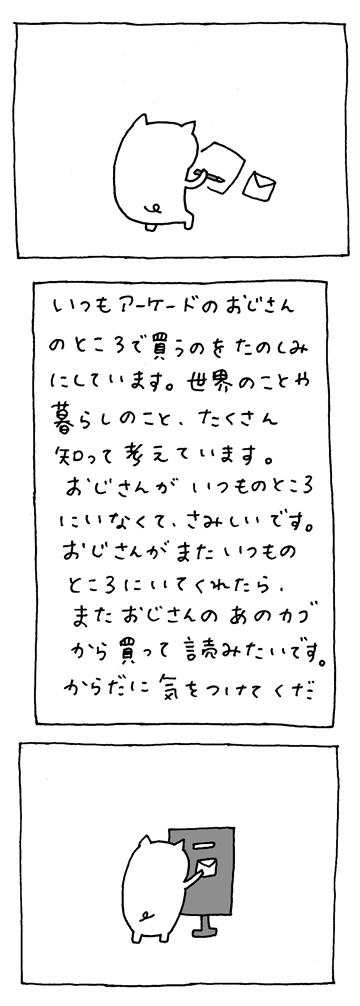 いつもアーケードのおじさん
のところで買うのをたのしみ
にしています。世界のことや
暮らしのこと、たくさん
知って考えています。
おじさんがいつものところ
にいなくて、さみしいです。
おじさんがまたいつもの
ところにいてくれたら、
またおじさんのあのカゴ
から買って読みたいです。
からだに気をつけてくだ